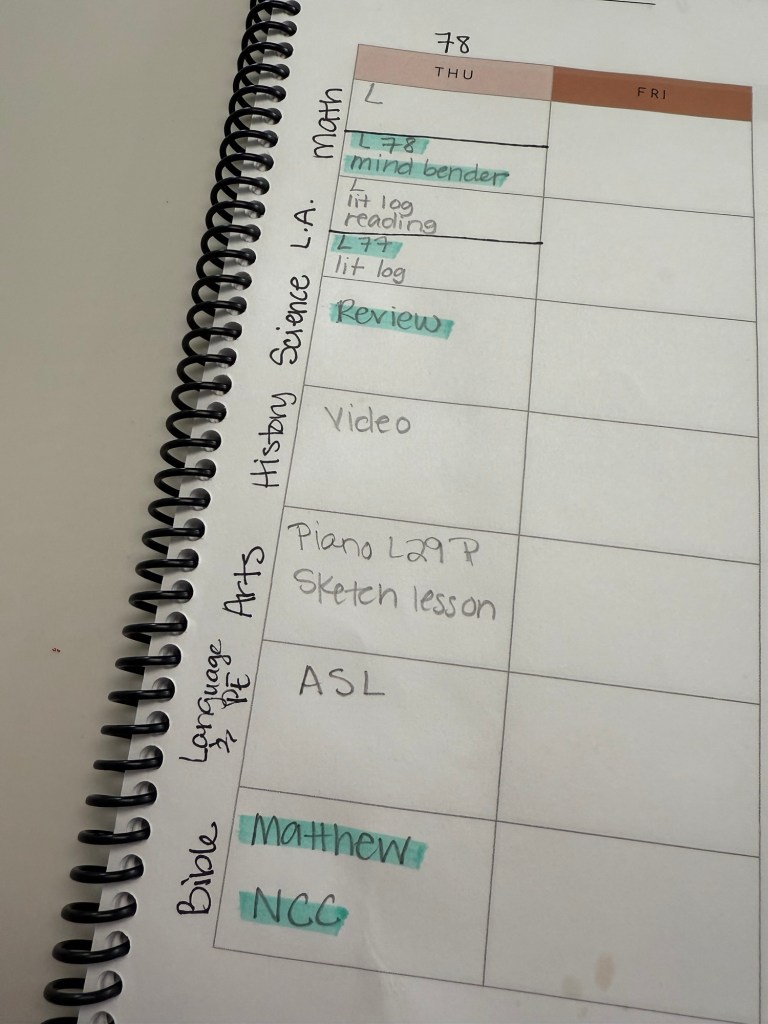 78
THU
FRI
Math
L
L 78
mind bender
L.A.
L
lit log
reading
L 77
lit log
Science
Review
History
Video
Arts
Piano L29 P
Sketch lesson
Language
& PE
ASL
Bible
Matthew
NCC